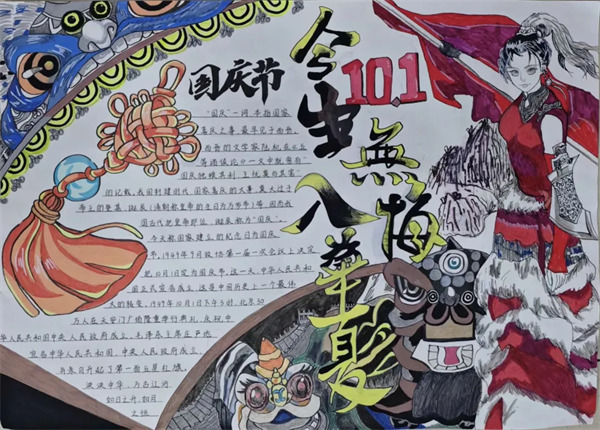 国庆节
10.1
今生無悔
入華夏
"国庆"一词,本指国家
喜庆之事,最早见于西晋。
西晋的文学家陆机在《五
等诸侯论》一文中就曾有"
国庆独飨其利,主忧莫与其害"
的记载,我国封建时代国家喜庆的大事,莫大过于
帝王的登基、诞辰
国古代把皇帝即位、诞辰称为"国庆"。
今天称国家建立的纪念日为国庆
1949年9月政协第一届一次会议上决定
把10月1日定为国庆节,这一天,中华人民共和
国正式宣告成立,这是中国历史上一个最伟
大的转变,1949年10月1日下午3时,北京30
万人在天安门广场隆重举行典礼,庆祝中
华人民共和国中央人民政府成立,毛泽东主席庄严地
宣告中华人民共和国、中央人民政府成立,
并亲自升起了第一面五星红旗。
泱泱中华,万古江河
如日之升,如月
之恒